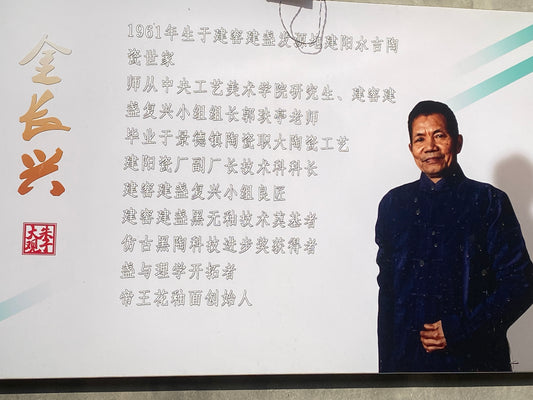 金长兴
朱子
大观
1961年生于建窑建盏发源地建阳水吉陶
瓷世家
师从中央工艺美术学院研究生、建窑建
盏复兴小组组长郭玖亭老师
毕业于景德镇陶瓷职大陶瓷工艺
建阳瓷厂副厂长技术科科长
建窑建盏复兴小组良匠
建窑建盏黑无釉技术奠基者
仿古黑陶科技进步奖获得者
盏与理学开拓者
帝王花釉面创始人